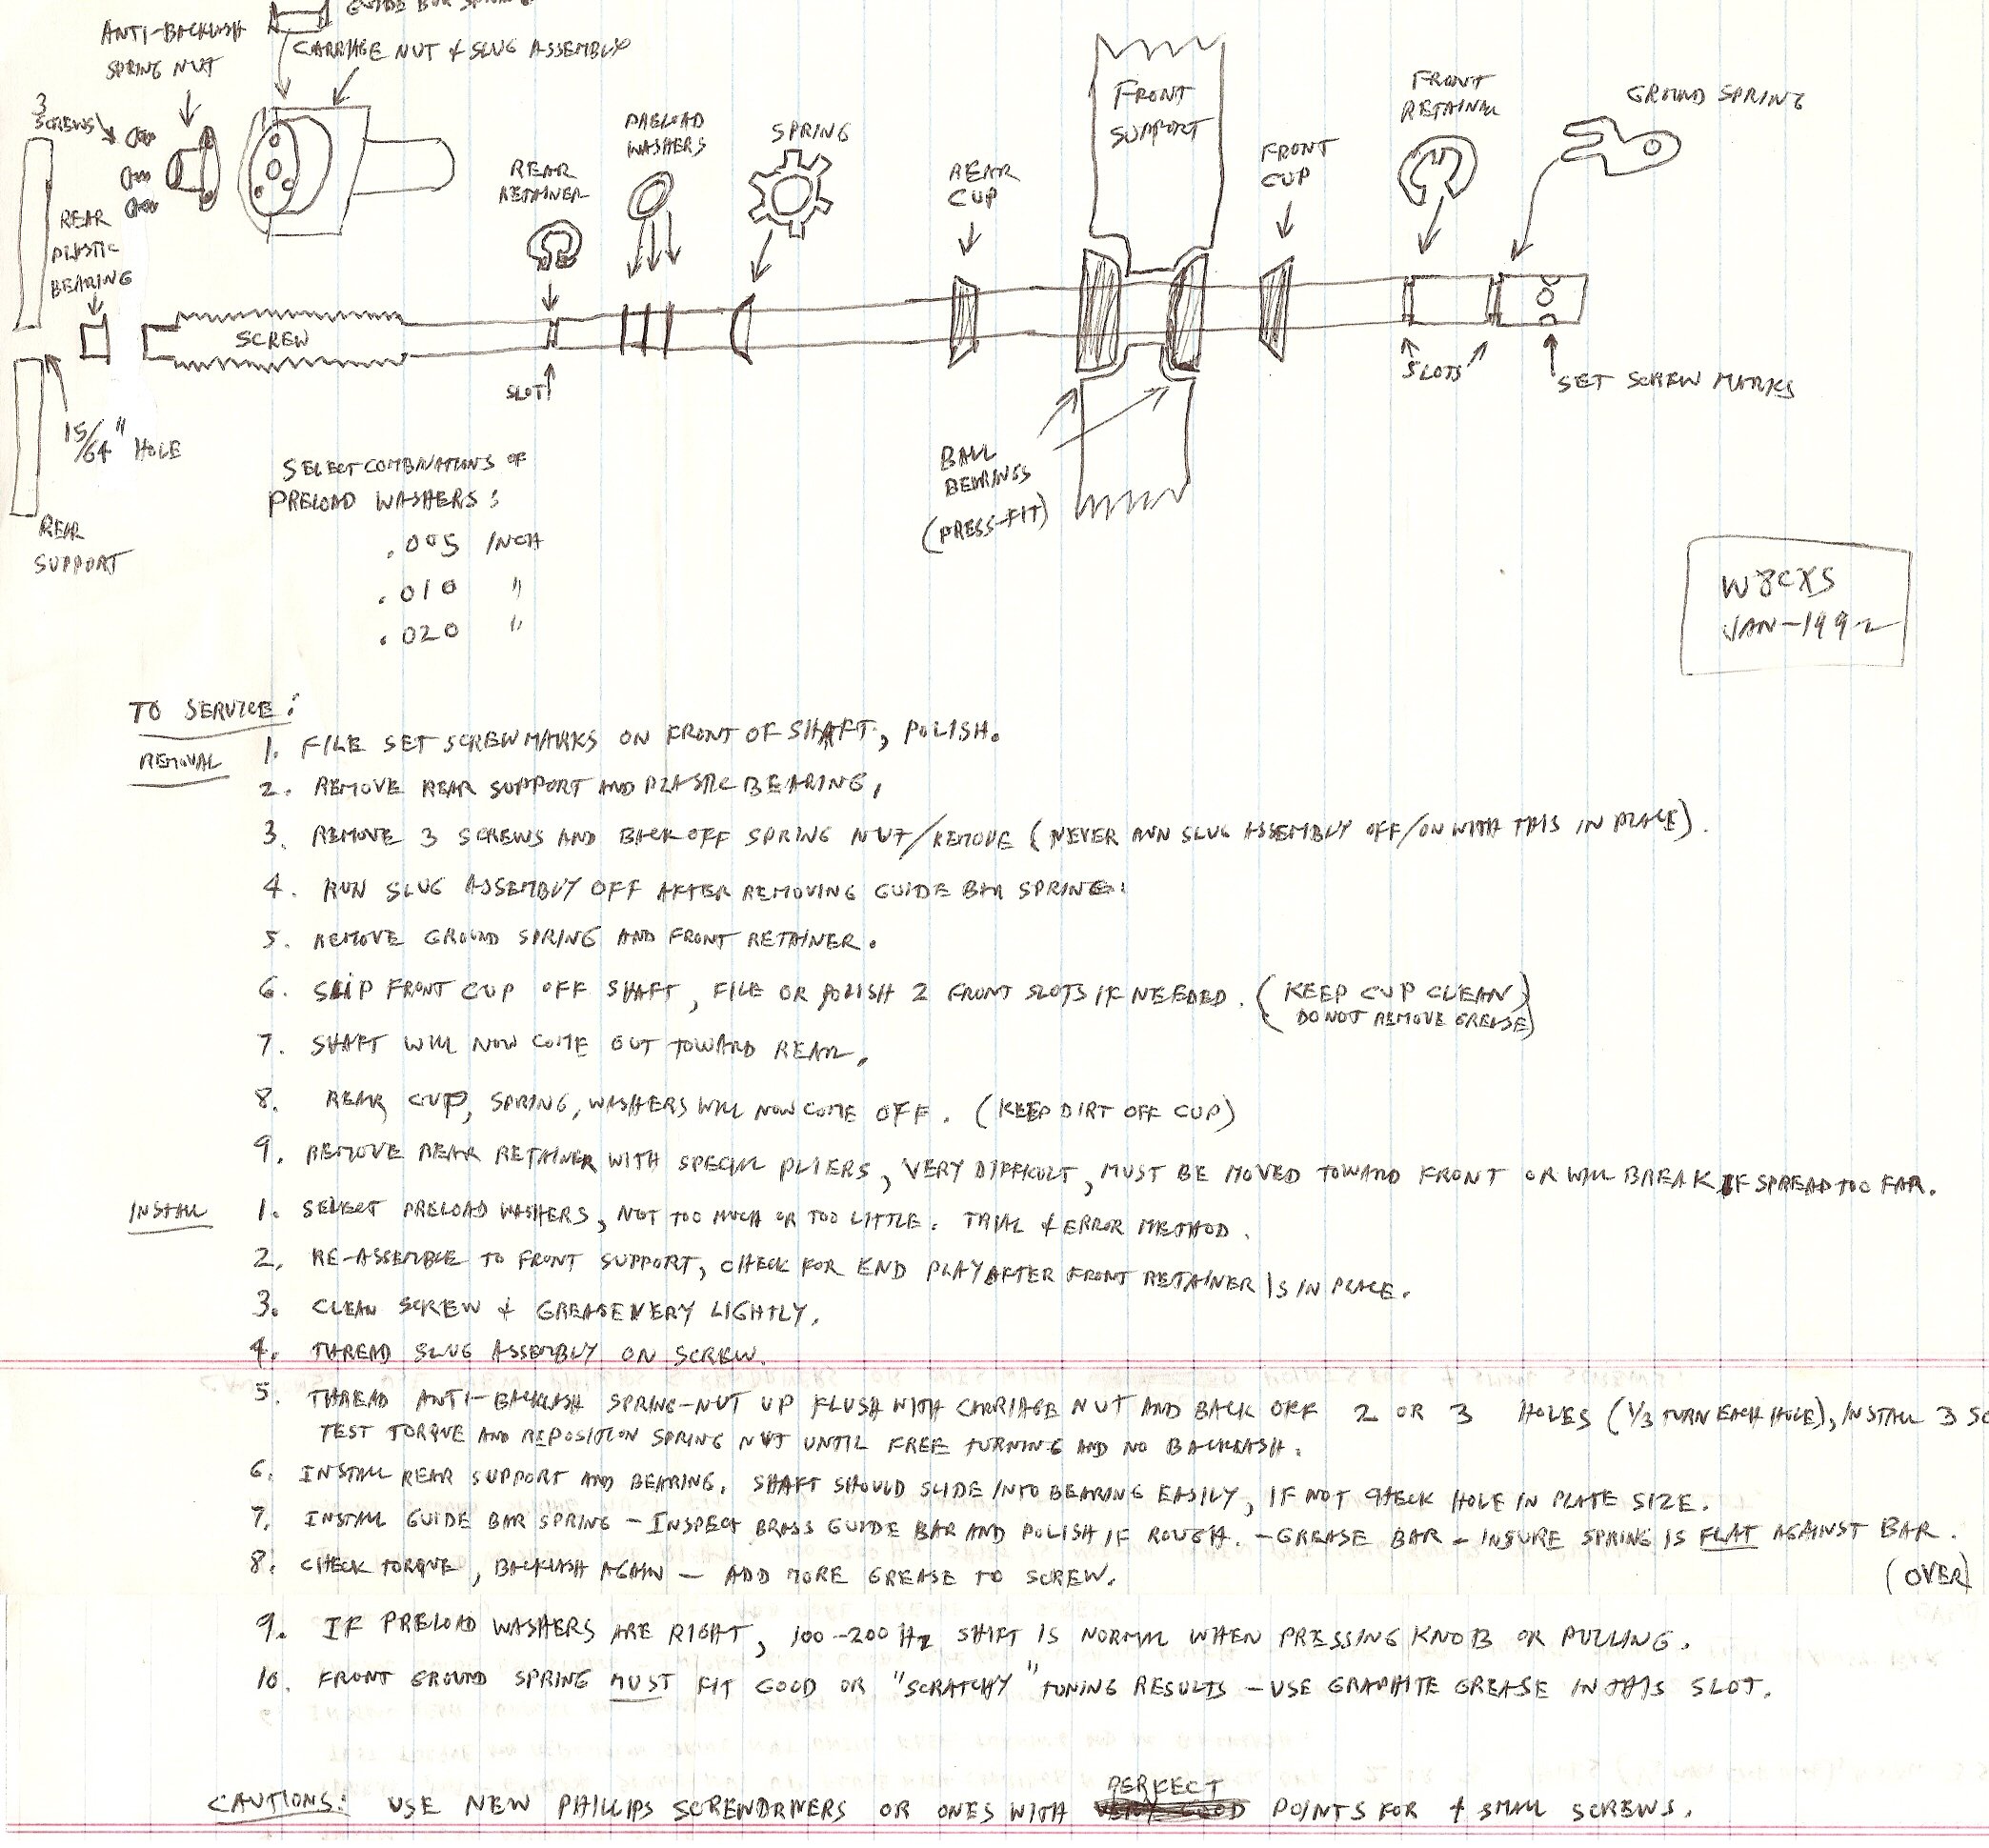 GUIDE BAR SPRING
ANTI-BACKLASH
SPRING NUT
CARRIAGE NUT & SLUG ASSEMBLY
3
SCREWS
REAR
PLASTIC
BEARING
REAR
RETAINER
PRELOAD
WASHERS
SPRING
REAR
CUP
FRONT
SUPPORT
FRONT
CUP
FRONT
RETAINER
GROUND SPRING
SCREW
SLOT
SLOTS
SET SCREW MARKS
15/64" HOLE
REAR
SUPPORT
BALL
BEARINGS
(PRESS-FIT)
SELECT COMBINATIONS OF
PRELOAD WASHERS:
.005 INCH
.010 "
.020 "
W8CXS
JAN-1992
TO SERVICE:
REMOVAL
1. FILE SET SCREW MARKS ON FRONT OF SHAFT, POLISH.
2. REMOVE REAR SUPPORT AND PLASTIC BEARING,
3. REMOVE 3 SCREWS AND BACK OFF SPRING NUT/REMOVE (NEVER RUN SLUG ASSEMBLY OFF/ON WITH THIS IN PLACE).
4. RUN SLUG ASSEMBLY OFF AFTER REMOVING GUIDE BAR SPRING.
5. REMOVE GROUND SPRING AND FRONT RETAINER.
6. SLIP FRONT CUP OFF SHAFT, FILE OR POLISH 2 FRONT SLOTS IF NEEDED. (KEEP CUP CLEAN
DO NOT REMOVE GREASE)
7. SHAFT WILL NOW COME OUT TOWARD REAR.
8. REAR CUP, SPRING, WASHERS WILL NOW COME OFF. (KEEP DIRT OFF CUP)
9. REMOVE REAR RETAINER WITH SPECIAL PLIERS, VERY DIFFICULT, MUST BE MOVED TOWARD FRONT OR WILL BREAK IF SPREAD TOO FAR.
INSTALL
1. SELECT PRELOAD WASHERS, NOT TOO MUCH OR TOO LITTLE. TRIAL & ERROR METHOD.
2. RE-ASSEMBLE TO FRONT SUPPORT, CHECK FOR END PLAY AFTER FRONT RETAINER IS IN PLACE.
3. CLEAN SCREW & GREASE VERY LIGHTLY.
4. THREAD SLUG ASSEMBLY ON SCREW.
5. THREAD ANTI-BACKLASH SPRING-NUT UP FLUSH WITH CARRIAGE NUT AND BACK OFF 2 OR 3 HOLES (1/3 TURN EACH HOLE), INSTALL 3 SC
TEST TORQUE AND REPOSITION SPRING NUT UNTIL FREE TURNING AND NO BACKLASH.
6. INSTALL REAR SUPPORT AND BEARING. SHAFT SHOULD SLIDE INTO BEARING EASILY, IF NOT CHECK HOLE IN PLATE SIZE.
7. INSTALL GUIDE BAR SPRING - INSPECT BRASS GUIDE BAR AND POLISH IF ROUGH. - GREASE BAR - INSURE SPRING IS FLAT AGAINST BAR.
8. CHECK TORQUE, BACKLASH AGAIN - ADD MORE GREASE TO SCREW.
(OVER)
9. IF PRELOAD WASHERS ARE RIGHT, 100-200 Hz SHIFT IS NORMAL WHEN PRESSING KNOB OR PULLING.
10. FRONT GROUND SPRING MUST FIT GOOD OR "SCRATCHY" TUNING RESULTS - USE GRAPHITE GREASE IN THIS SLOT.
PERFECT
CAUTIONS: USE NEW PHILLIPS SCREWDRIVERS OR ONES WITH VERY GOOD POINTS FOR 4 SMALL SCREWS.